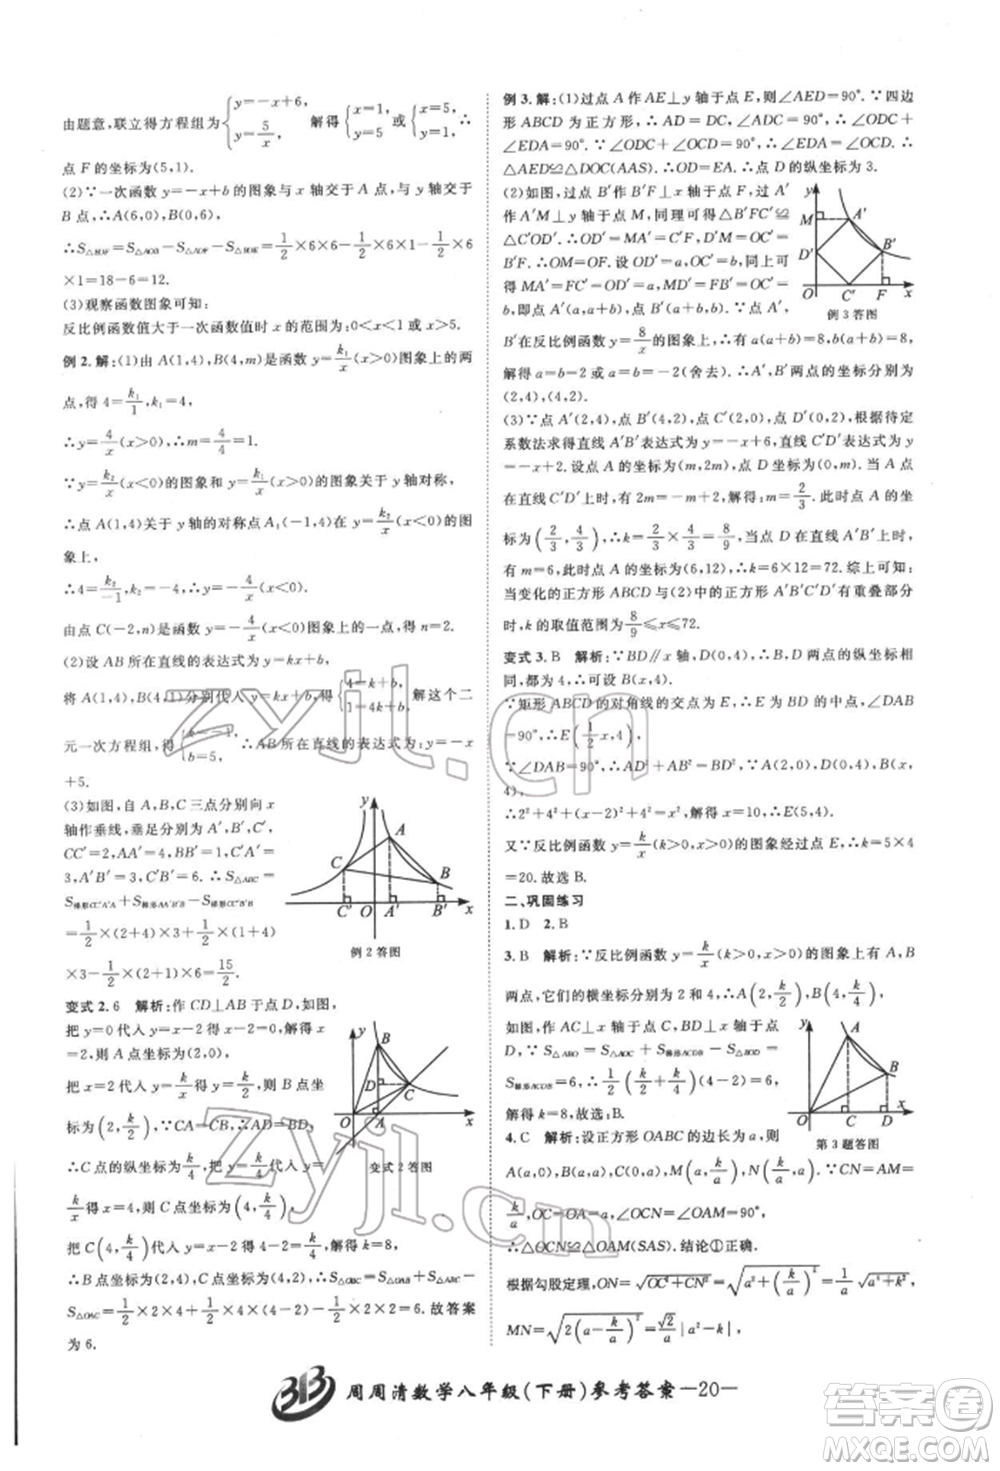 由题意,联立得方程组为{y=-x+6, y=5/x, 解得{x=1, y=5 或{x=5, y=1, ∴
点 F 的坐标为(5,1).
(2)∵一次函数 y=-x+b 的图象与 x 轴交于 A 点,与 y 轴交于
B 点,∴A(6,0),B(0,6),
∴S△BOF=S△AOB-S△AOF-S△BOE=1/2×6×6-1/2×6×1-1/2×6
×1=18-6=12.
(3)观察函数图象可知:
反比例函数值大于一次函数值时 x 的范围为:0<x<1或x>5.
例 2.解:(1)由 A(1,4),B(4,m)是函数 y=k₁/x(x>0)图象上的两
点,得 4=k₁/1,k₁=4,
∴y=4/x(x>0),∴m=4/4=1.
∵y=k₁/x(x>0)的图象和函数 y=k₂/x(x<0)的图象关于 y 轴对称,
∴点 A(1,4)关于 y 轴的对称点 A₁(-1,4)在函数 y=k₂/x的图
象上,
∴4=k₂/-1,k₂=-4,∴y=-4/x(x<0),
由点 C(-2,n)是函数 y=-4/x图象上的一点,得 n=2.
(2)设 AB 所在直线的表达式为 y=kx+b,
将 A(1,4),B(4,1)分别代入 y=kx+b,得{4=k+b, 1=4k+b, 解这个二
元一次方程组,得{k=-1, b=5, ∴AB 所在直线的表达式为:y=-x
+5.
(3)如图,自 A,B,C 三点分别向 x
轴作垂线,垂足分别为 A′,B′,C′,
CC′=2,AA′=4,BB′=1,C′A′=
3,A′B′=3,∴S△ABC=
S梯形CC′A′A+S梯形AA′B′B-S梯形CC′B′B
=1/2×(2+4)×3+1/2×(1+4)
×3-1/2×(2+1)×6=15/2.
y A C B C′ O A′ B′ x
例 2 答图
变式 2. 6 解析:作 CD⊥AB 于点 D,如图,
把 y=0 代入 y=x-2,解得 x
=2,则 A 点坐标为(2,0),
把 x=2 代入 y=k/x得 y=k/2,则 B 点
标为(2,k/2),∵CA=CB,∴AD=BD,
∴C 点的纵坐标为k/4,把 y=k/4代入 y=
k/x得 x=4,则 C 点坐标为(4,k/4),
把 C(4,k/4)代入 y=x-2 得k/4=4-2,解得 k=8,
∴B 点坐标为(2,4),C 点坐标为(4,2),∴S△OBC=S△OBA+S△ABC-
S△OAC=1/2×2×4+1/2×4×(4-2)-1/2×2×2=6.故答案
为 6.
y B D C O A x
变式 2 答图
例 3.解:(1)过点 A 作 AE⊥y 轴于点 E,则∠AED=90°.∵四边
形 ABCD 为正方形,∴AD=DC,∠ADC=90°,∴∠ODC+
∠EDA=90°.∵∠ODC+∠OCD=90°,∴∠EDA=∠OCD,
∴△AED≌△DOC(AAS).∴OD=EA.∴点 A 的纵坐标为 3.
(2)如图,过点 B′作 B′F⊥x 轴于点 F,过点 A′
作 A′M⊥y 轴于点 M,同理可得△B′FC′≌
△C′OD′.∴OD′=MA′=C′F=a,OC′=D′M=
B′F=b,∴OM=OF=a+b.设OD′=a,OC′=b,同上可
得,OD′=MA′=C′F=a,OC′=MD′=B′F=
b,即点 A′(a,a+b),点 B′(a+b,b).∵点 A′,
y M A′ D′ B′ O C′ F x
例 3 答图
B′在反比例函数 y=8/x的图象上,∴a(a+b)=8,b(a+b)=8,
解得 a=b=2或 a=b=-2(舍去).∴A′,B′两点的坐标分别为
(2,4),(4,2).
(3)∵点 A′(2,4),点 B′(4,2),点 C′(2,0),点 D′(0,2),根据待定
系数法求得直线 A′B′表达式为 y=-x+6,直线 C′D′表达式为 y
=-x+2.设点 A 的坐标为(m,2m),点 D 坐标为(0,m).当 A 点
在直线 C′D′上时,有 2m=-m+2,解得:m=2/3,此时点 A 的坐
标为(2/3,4/3),∴k=2/3×4/3=8/9;当点 D 在直线 A′B′上时,
有 m=6,此时点 A 的坐标为(6,12),∴k=6×12=72.综上可知:
当变化的正方形 ABCD 与(2)中的正方形 A′B′C′D′有重叠部分时,
k 的取值范围为8/9≤x≤72.
变式 3. B 解析:∵BD∥x 轴,D(0,4),∴B,D 两点的纵坐标相
同,都为4,∴可设 B(x,4).
∵矩形 ABCD 的对角线的交点为 E,∴E 为 BD 中点,∠DAB
=90°,∴E(1/2x,4).
∵∠DAB=90°,∴AD²+AB²=BD².∵A(2,0),D(0,4),B(x,
4),
∴2²+4²+(x-2)²+4²=x²,解得 x=10,∴E(5,4).
又∵反比例函数 y=k/x(k>0,x>0)的图象经过点 E,∴k=5×4
=20.故选 B.
二、巩固练习
1. D 2. B
3. B 解析:∵反比例函数 y=k/x(k>0,x>0)的图象上有 A,B
两点,它们的横坐标分别为 2 和 4,∴A(2,k/2),B(4,k/4),
如图,作 AC⊥x 轴于点 C,BD⊥x 轴于点
D.∵S△ABO=S△AOC+S梯形ACDB-S△BOD=
S梯形ACDB=6,∴1/2(k/2+k/4)(4-2)=6,
解得 k=8,故选 B.
y A B O C D x
第 3 题答图
4. C 解析:设正方形 OABC 的边长为 a,则
A(a,0),B(a,a),C(0,a),M(a,k/a),N(k/a,a).∵CN=AM=
k/a,OC=OA=a,∠OCN=∠OAM=90°,
∴△OCN≌△OAM(SAS).结论①正确;
根据勾股定理,ON=√(OC²+CN²)=√(a²+(k/a)²)=1/a√(a⁴+k²),
MN=√(2(a-k/a)²)=√2/a|a²-k|,
周周清数学八年级(下册)参考答案 —20—
zyjl.cn
zyjl.cn
答案圈
MXQE.COM